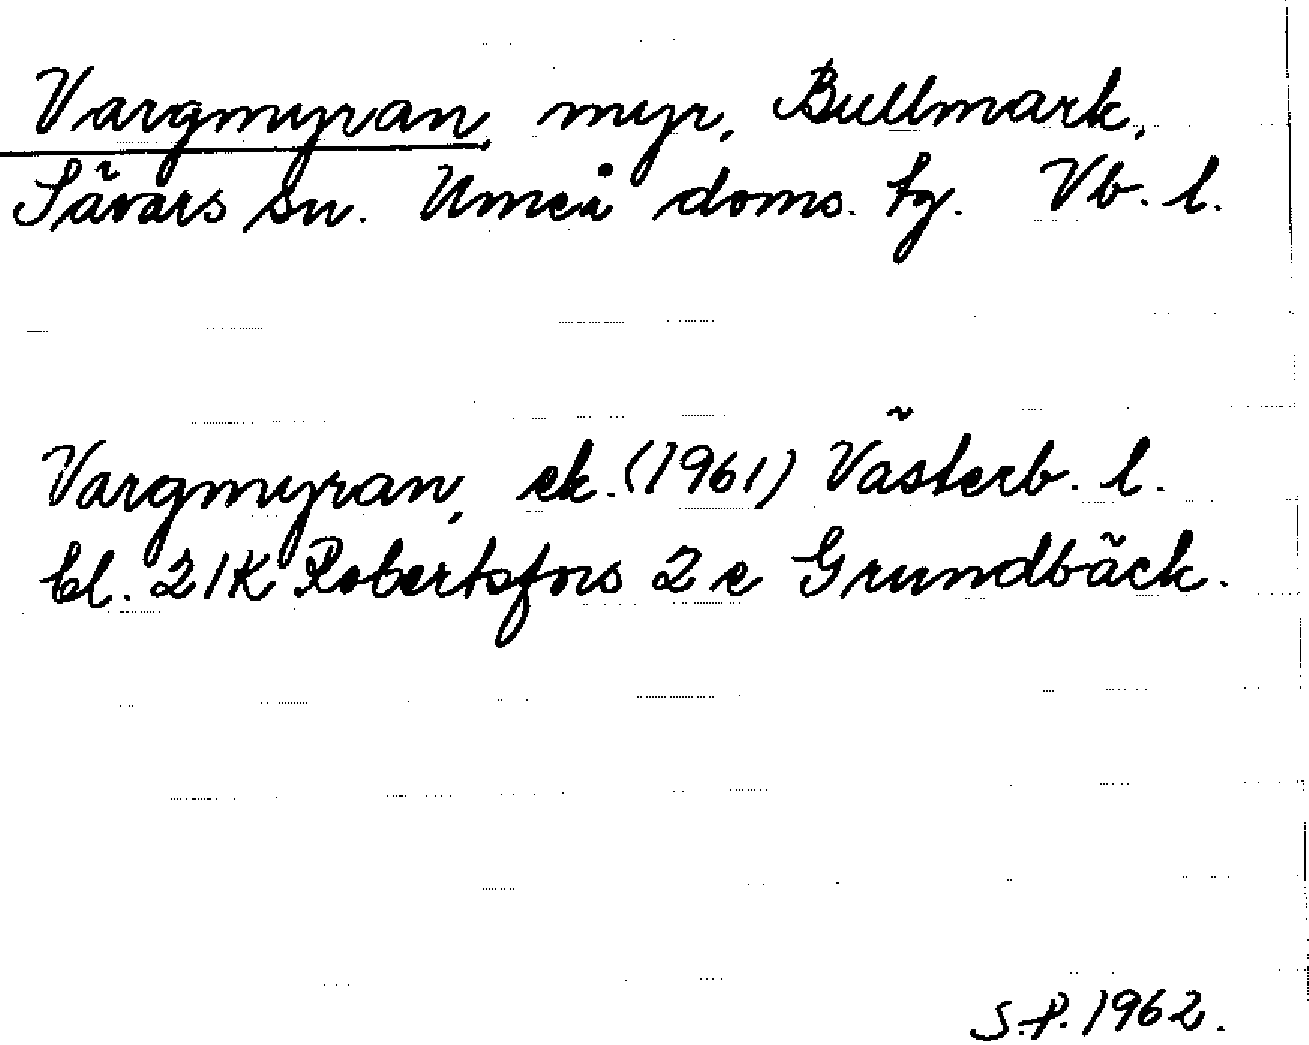 Vargmyran, myr, Bullmark,
Sävars sn. Umeå doms. tg. Vb. l.
Vargmyran, ek. (1961) Västerb. l.
bl. 21K Robertsfors 2 e Grundbäck.
S.P. 1962.